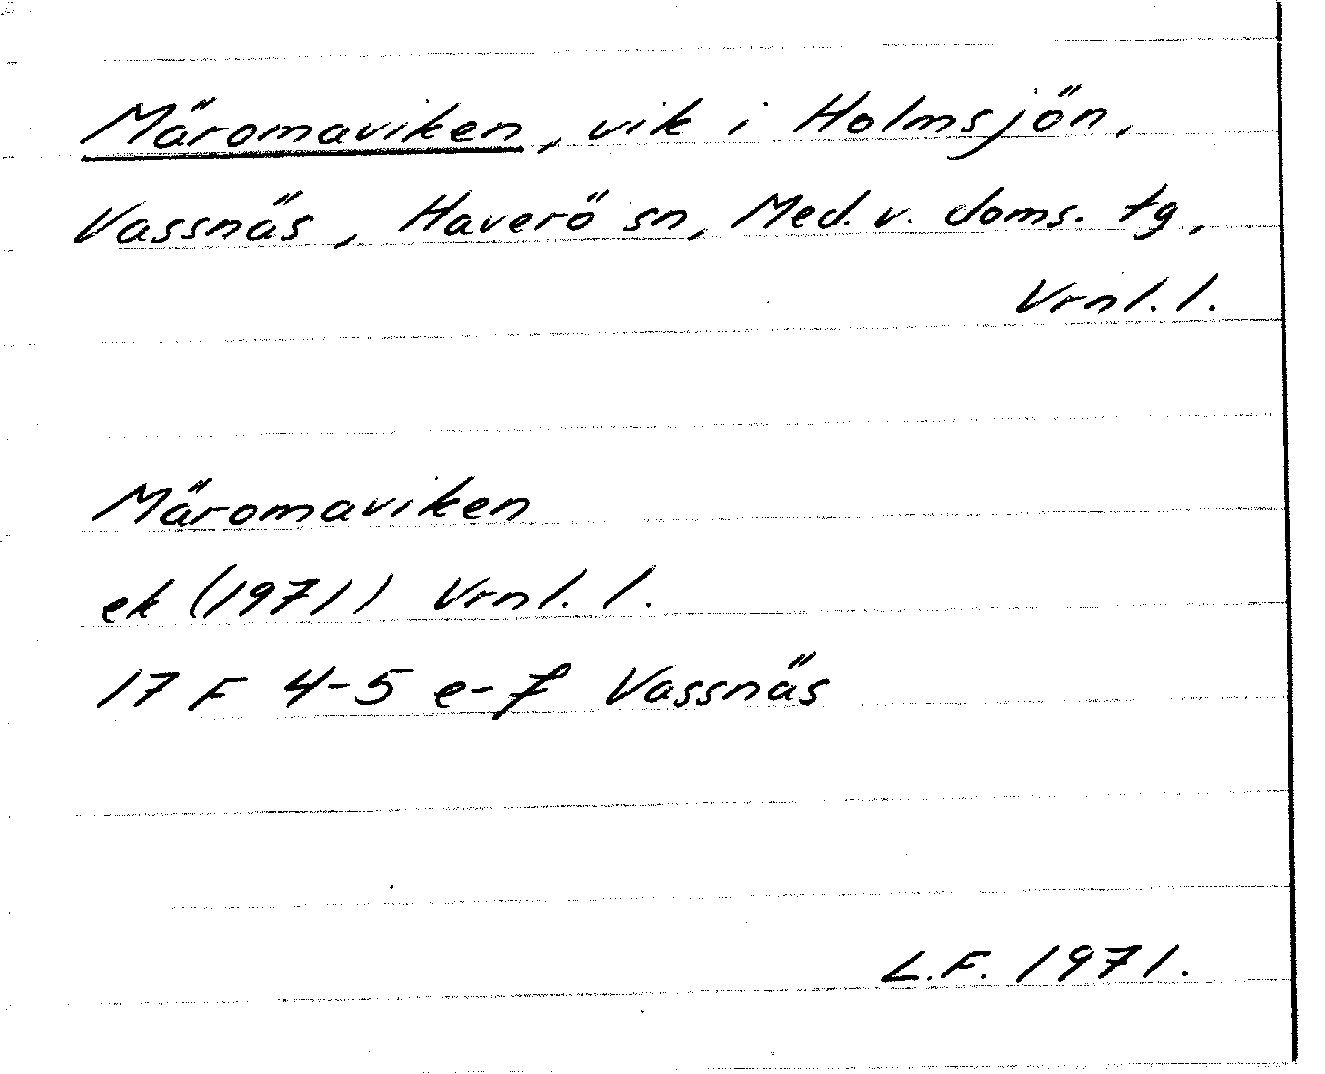 Märomaviken, vik i Holmsjön,
Vassnäs, Haverö sn, Med. v. doms. tg,
Vrnl. l.
Märomaviken
ek (1971) Vrnl. l.
17 F 4-5 e-f Vassnäs
L.F. 1971.